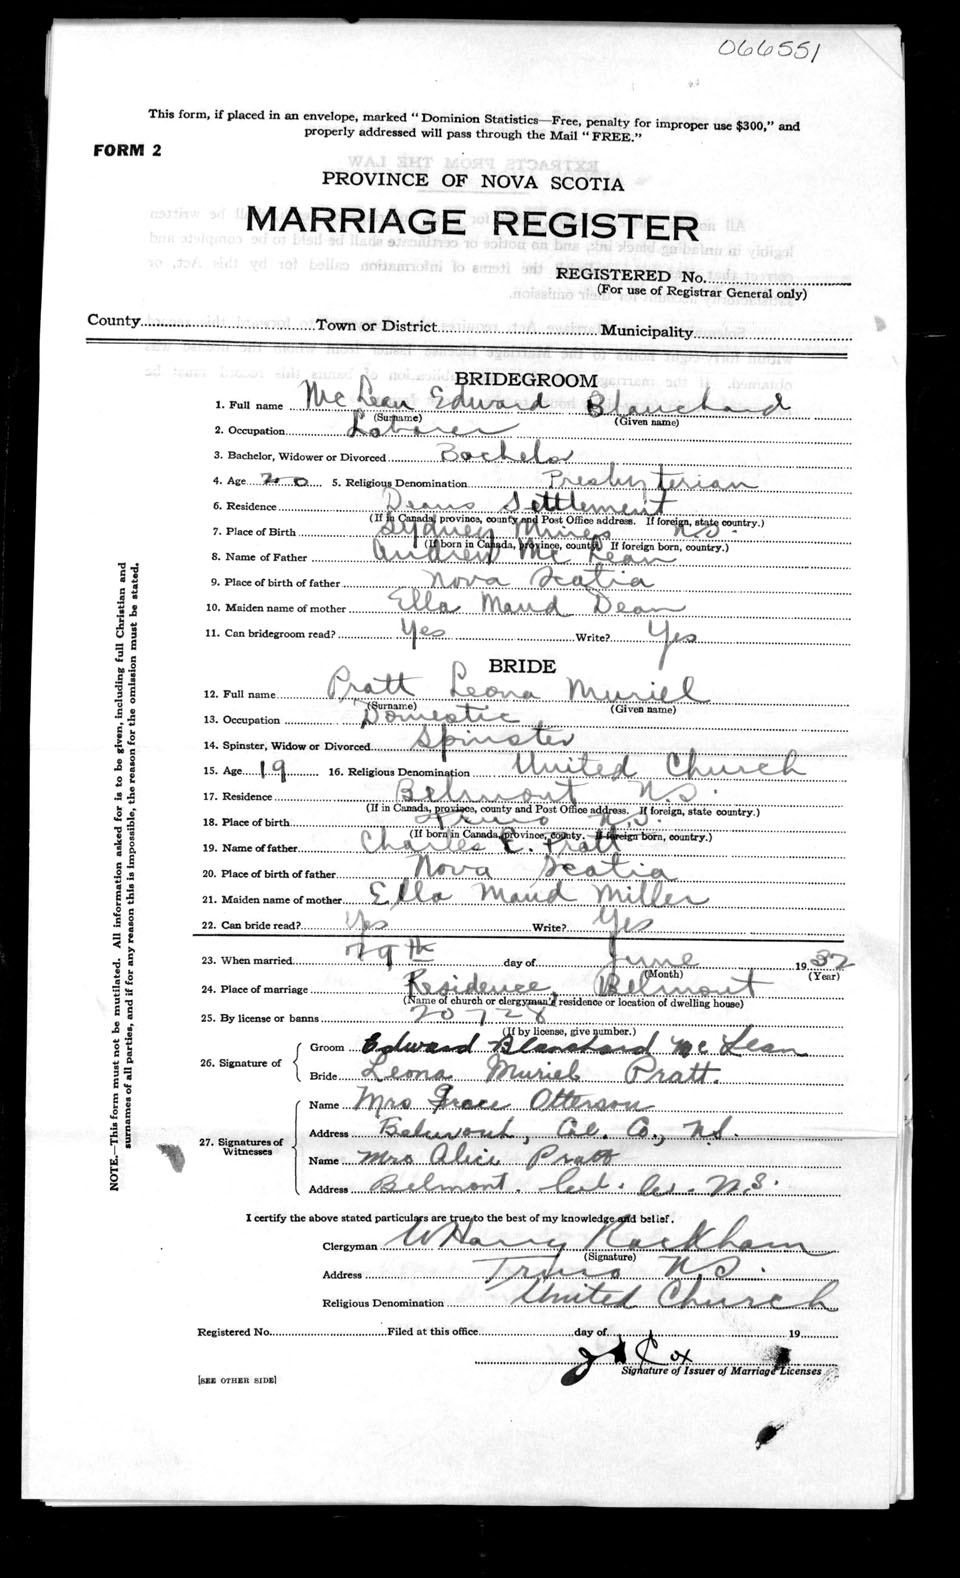 066551
This form, if placed in an envelope, marked "Dominion Statistics—Free, penalty for improper use $300," and
properly addressed will pass through the Mail "FREE."
FORM 2
PROVINCE OF NOVA SCOTIA
MARRIAGE REGISTER
REGISTERED No.
(For use of Registrar General only)
County Town or District Municipality
BRIDEGROOM
1. Full name McLean Edward Blanchard
(Surname) (Given name)
2. Occupation Laborer
3. Bachelor, Widower or Divorced Bachelor
4. Age 20 5. Religious Denomination Presbyterian
6. Residence Deans Settlement
(If in Canada, province, county and Post Office address. If foreign, state country.)
7. Place of Birth Sydney Mines N.S.
(If born in Canada, province, county. If foreign born, country.)
8. Name of Father Andrew McLean
9. Place of birth of father Nova Scotia
10. Maiden name of mother Ella Maud Dean
11. Can bridegroom read? Yes Write? Yes
BRIDE
12. Full name Pratt Leona Muriel
(Surname) (Given name)
13. Occupation Domestic
14. Spinster, Widow or Divorced Spinster
15. Age 19 16. Religious Denomination United Church
17. Residence Belmont N.S.
(If in Canada, province, county and Post Office address. If foreign, state country.)
18. Place of birth Truro N.S.
(If born in Canada, province, county. If foreign born, country.)
19. Name of father Charles E. Pratt
20. Place of birth of father Nova Scotia
21. Maiden name of mother Ella Maud Miller
22. Can bride read? Yes Write? Yes
23. When married 29th day of June 1932
(Month) (Year)
24. Place of marriage Residence, Belmont
(Name of church or clergyman's residence or location of dwelling house)
25. By license or banns 20728
(If by license, give number.)
26. Signature of
Groom Edward Blanchard McLean
Bride Leona Muriel Pratt.
27. Signatures of Witnesses
Name Mrs Grace Otterson
Address Belmont, Col. Co., N.S.
Name Mrs Alice Pratt
Address Belmont. Col. Co. N.S.
I certify the above stated particulars are true to the best of my knowledge and belief.
Clergyman W Harry Rackham
(Signature)
Address Truro N.S.
Religious Denomination United Church
Registered No. Filed at this office day of 19
Cox
Signature of Issuer of Marriage Licenses
[SEE OTHER SIDE]
NOTE.—This form must not be mutilated. All information asked for is to be given, including full Christian and
surnames of all parties, and if for any reason this is impossible, the reason for the omission must be stated.